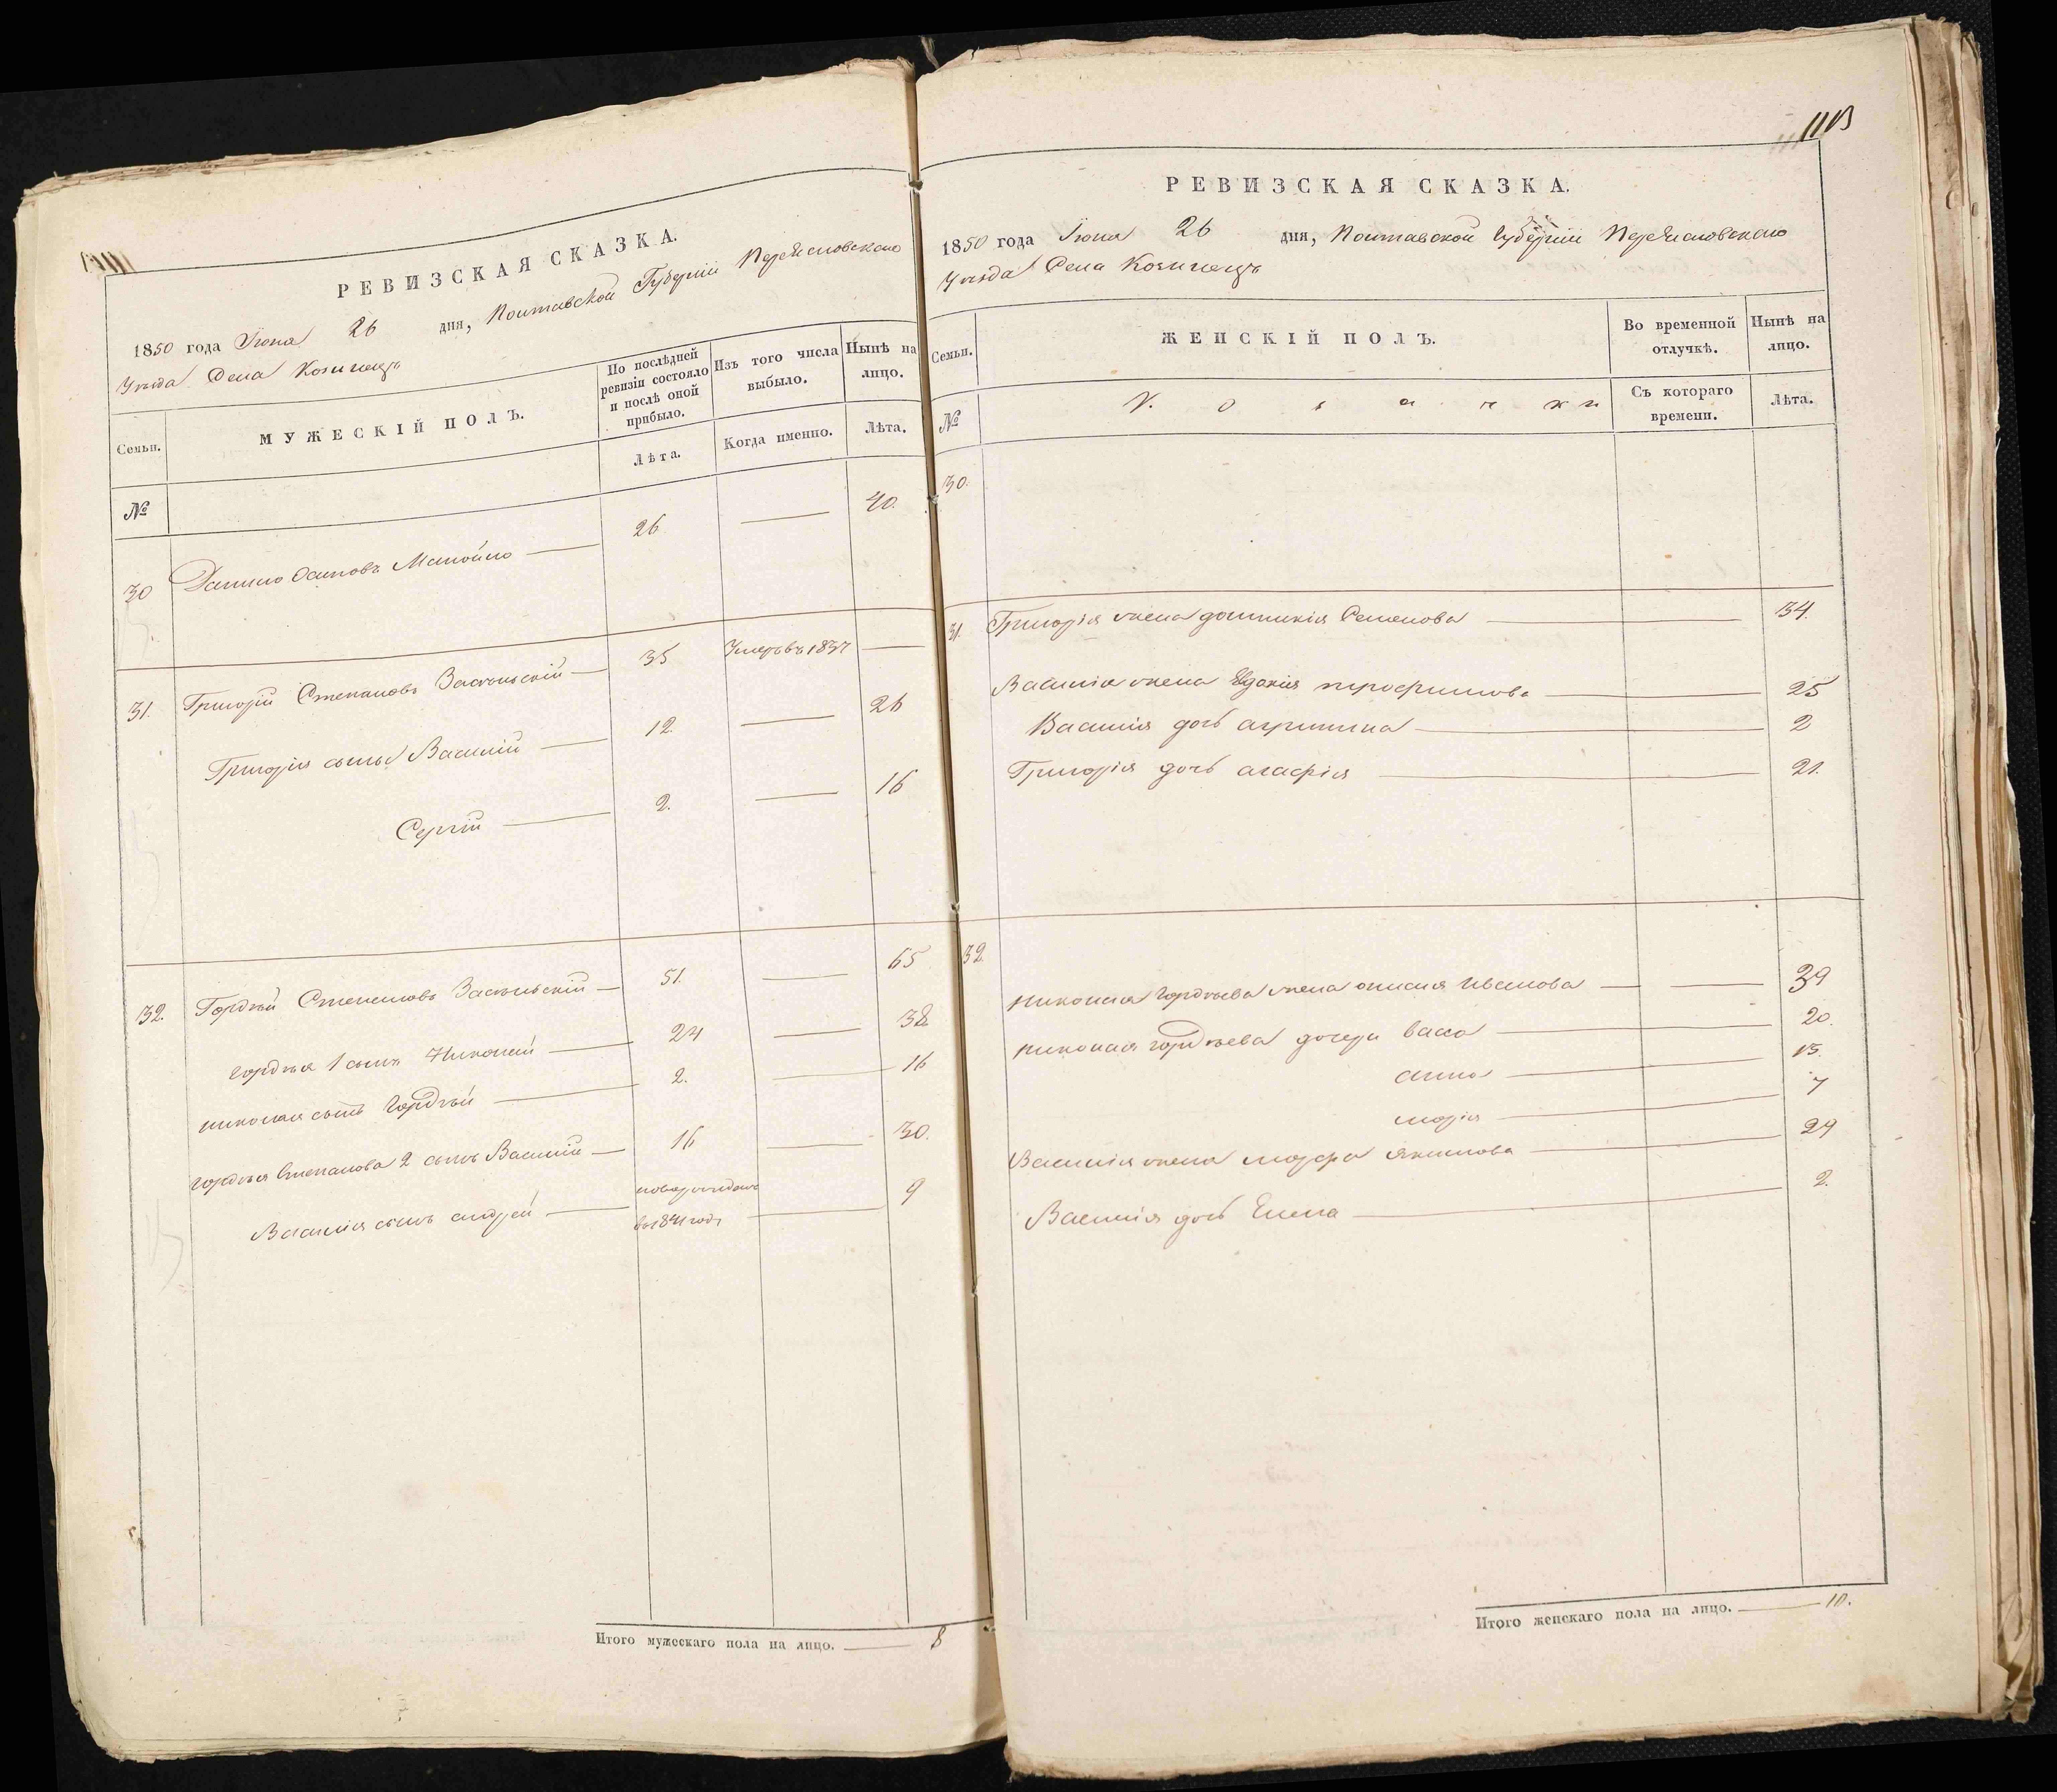 РЕВИЗСКАЯ СКАЗКА.
1850 года Iюня 26 дня, Полтавской Губернiи Переясловского
Уезда Села Козинецъ
Семьи.
МУЖЕСКІЙ ПОЛЪ.
По послѣдней ревизіи состояло и послѣ оной прибыло.
Изъ того числа выбыло.
Нынѣ на лицо.
Лѣта.
Когда именно.
Лѣта.
№
30 Данило Осиповъ Манойло — 26 — 40.
31. Григорій Степановъ — 35 Умеръ въ 1837 —
Григорія сынъ Василій — 12. — 26
Сергій — 2. — 16
32. Гордѣй Степановъ — 51. — 65
Гордѣя 1 сынъ Николай — 24 — 38
Николая сынъ Гордѣй — 2. — 16
Гордѣя Степанова 2 сынъ Василій — 16 — 30.
Василія сынъ андрей — новорожденъ — 9
въ 1841 годъ
Итого мужескаго пола на лицо. — 8
1113
РЕВИЗСКАЯ СКАЗКА.
1850 года Iюня 26 дня, Полтавской Губерніи Переясловского
Уезда Села Козинецъ
Семьи.
ЖЕНСКІЙ ПОЛЪ.
Во временной отлучкѣ.
Нынѣ на лицо.
№
Козачки
Съ котораго времени.
Лѣта.
30.
31. Григорія жена Семенова — 34.
Василія жена Евдокія — 25
Василія дочь агрипина — 2
Григорія дочь агафія — 21.
32. Николая Гордѣева жена Иванова — — 39
Николая Гордѣева дочери васса — 20.
анна — 13.
марія — 7
Василія жена марфа Якимова — 29
Василія дочь Елена — 2.
Итого женскаго пола на лицо. — 10.